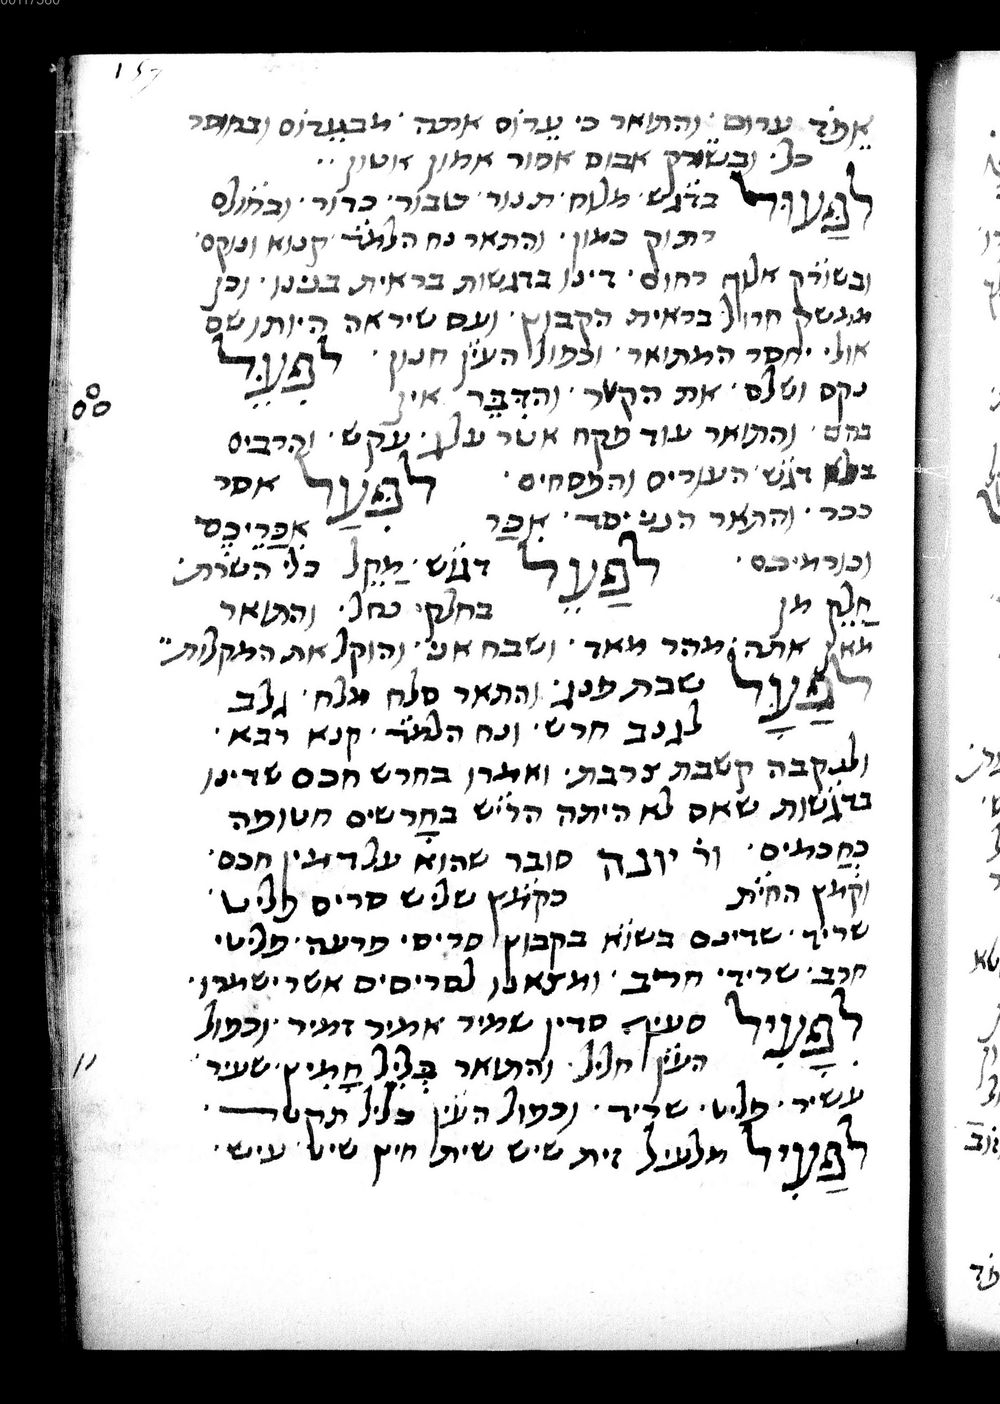 157
אמר ערום · והתואר כי ערום אתה · מבגדום ובחוסר
כל · ובשורק אבוס אסור אמון אטון ··
לפַּעוּל בדגש · מלוח · תנור · טבור · כדור · ובחולם
רתוק כמון · והתאר נח הלמד · קנוא ונוקם ·
ובשורק אלוף רחום · דינו בדגשות בראית בנינו · וכן
משקל חרול בראית הקבוץ · ועם שיראה היותו שם
אולי יחסר המתואר · וכפול העין חנון · לפִּעֵל
נקם ושלם · את הקטר · והדִבֵּר אין
בהם · והתואר עוד פקח אטר עלג · עקש · והרבים
בלא דגש העורים והפסחים · לפִּעַל אסר
ככר · והתאר הנני יסד · אִכַּר אִכַּרֵיכֶם
וכורמיכם · לפַּעֵל דגוש · מַקֵל כלי השרת ·
חַלֵק מן בחלקי נחל · והתואר
מאן אתה · מהר מאד · ושבח אני · והוקל את המקלית ·
לפַּעָל שבת פנג · והתאר סלח מלח · גלב
לגנב חרש · ונח הלמד · קנא רבא ·
ולנקבה קשבת צרבת · ואמרו בחרש חכם שדינו
בדגשות שאם לא היתה הריש בחָרשים חטופה
כְחַכמים · ור יונה סובר שהוא על דמיון חכם ·
וקמץ החית כקמץ שליש סריס פליט ·
שריד · שדינם בשוא בקבוץ סריסי פרעה · פליטי
חרב · שרידי חרב · ומצאנו לסריסים אשר ישמרו ·
לפָּעִיל סעיף סדין שמיר אמיר זמיר · וכפול
העין חליל · והתואר בְּלִיל חָמִיץ · שעיר
עשיר · פליט · שריד · וכפול העין כליל תקטר ·
לפַּעִיל מלעיל זית שיש שית חיץ שיט עיש ·